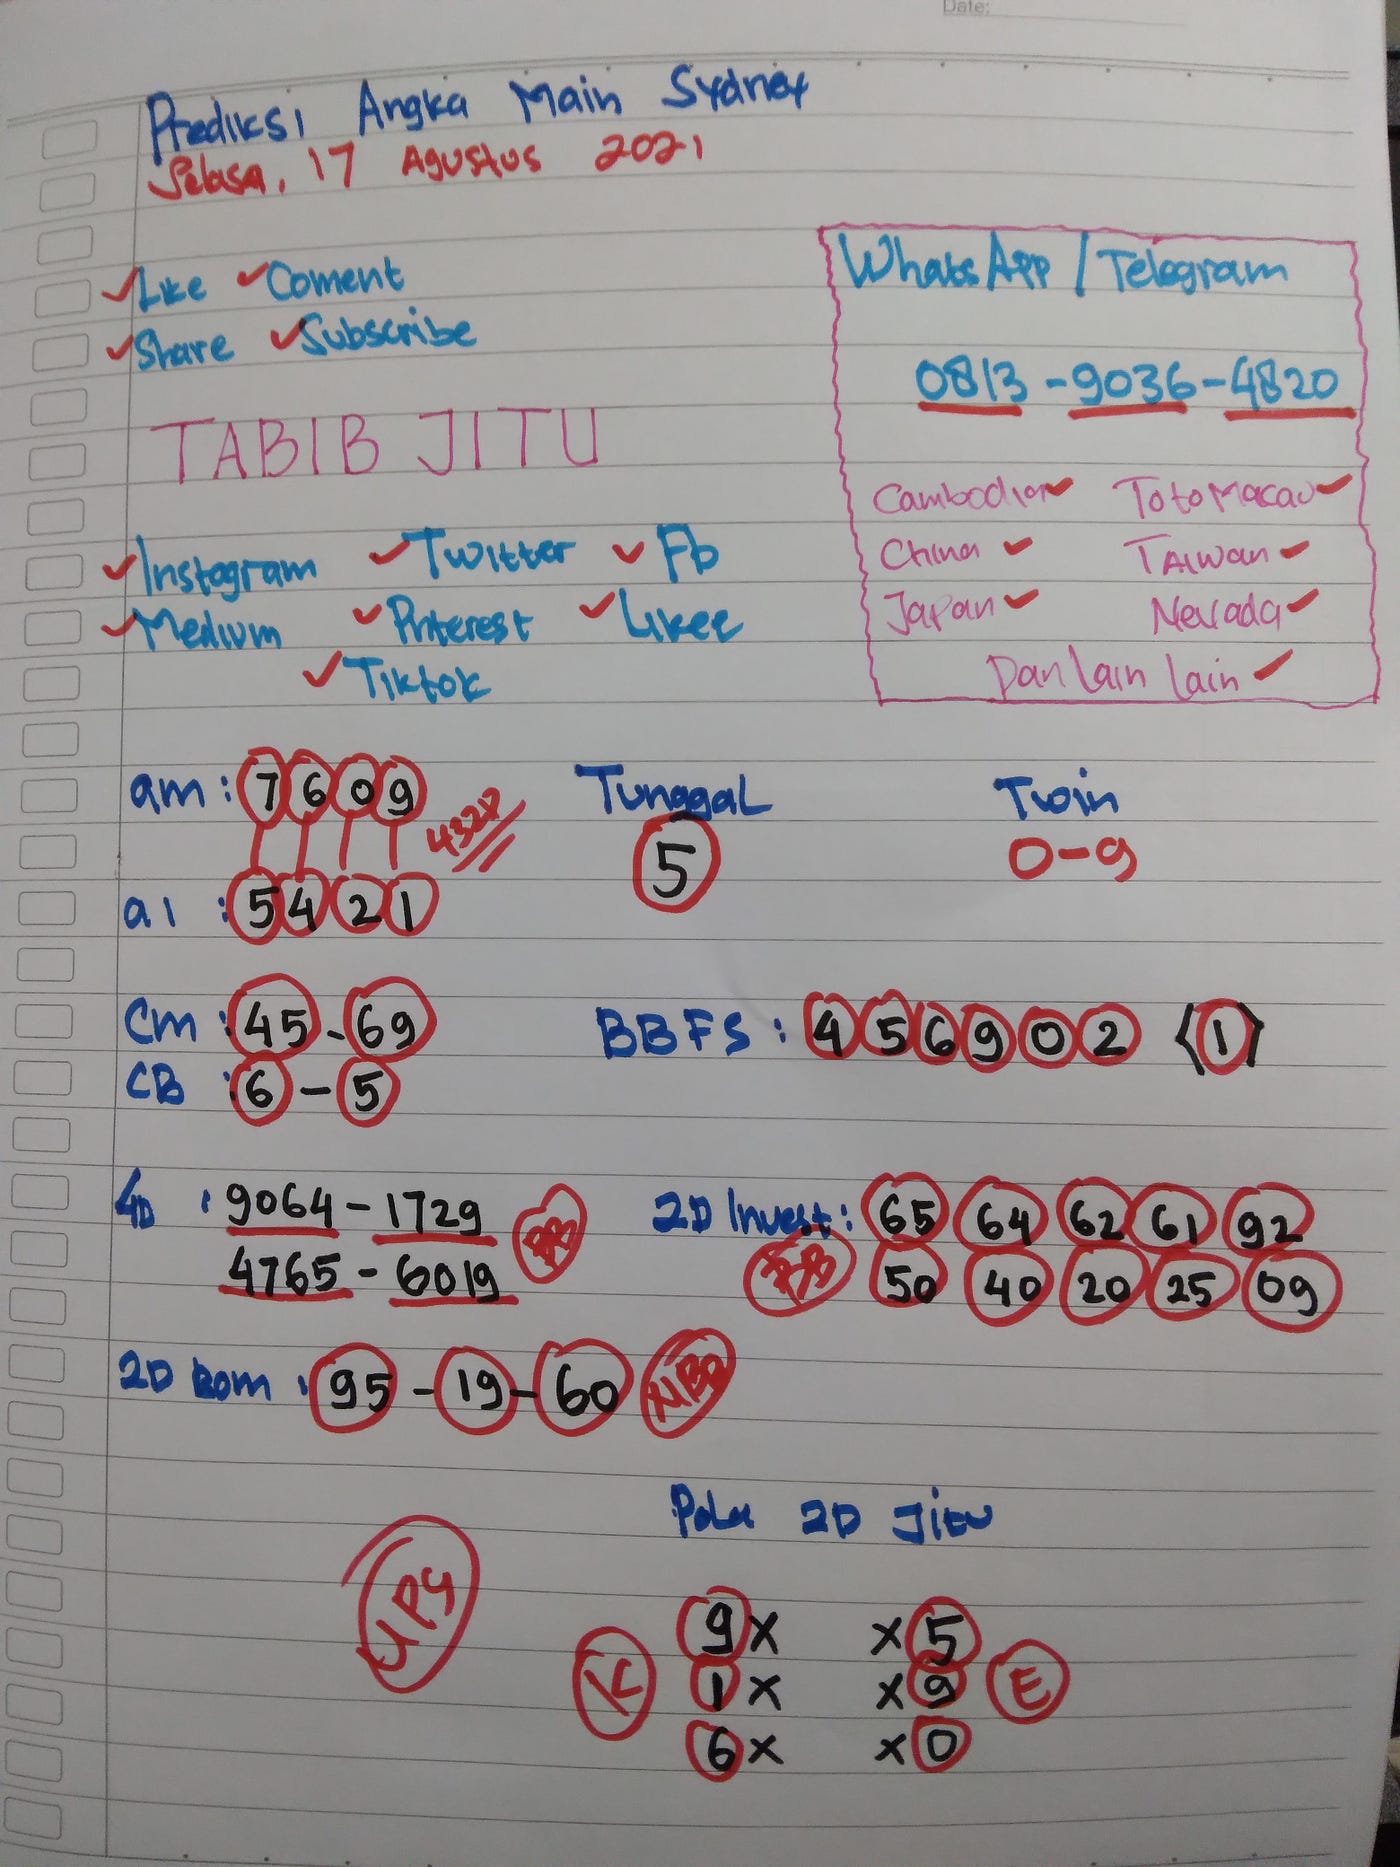 Date:
Prediksi Angka Main Sydney
Selasa, 17 Agustus 2021
Like Coment
Share Subscribe
TABIB JITU
Instagram Twitter Fb
Medium Pnterest Likee
Tiktok
WhatsApp / Telegram
0813-9036-4820
Cambodia Toto Macau
China TAiwan
Japan Nevada
Dan lain lain
am : 7 6 0 9
432D
ai : 5 4 2 1
Tunggal
5
Twin
0-9
Cm : 45 - 69
CB : 6 - 5
BBFS : 4 5 6 9 0 2 {1}
4D : 9064 - 1729
4765 - 6019
2D Invest : 65 64 62 61 92
BB 50 40 20 25 09
2D Bom : 95 - 19 - 60 NBB
Pola 2D Jitu
UPG
9x x5
K 1x x9 E
6x x0